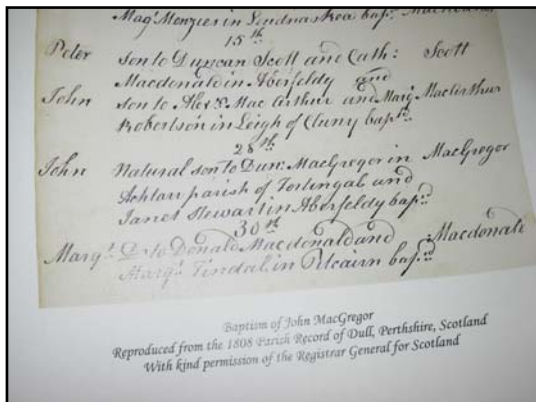 Margt Menzies in bapd.
15th
Peter son to Duncan Scott and Cath: Scott
Macdonald in Aberfeldy and
John son to Alexr. Mac Arthur and Margt MacArthur
Robertson in Leigh of Cluny bapd.
28th
John Natural son to Dun: MacGregor in MacGregor
parish of Fortingal and
Janet Stewart in Aberfeldy bapd.
30th
Margt. Dr. to Donald Macdonald and Macdonald
Margt. Tindal in Pitcairn bapd.
Baptism of John MacGregor
Reproduced from the 1808 Parish Record of Dull, Perthshire, Scotland
With kind permission of the Registrar General for Scotland